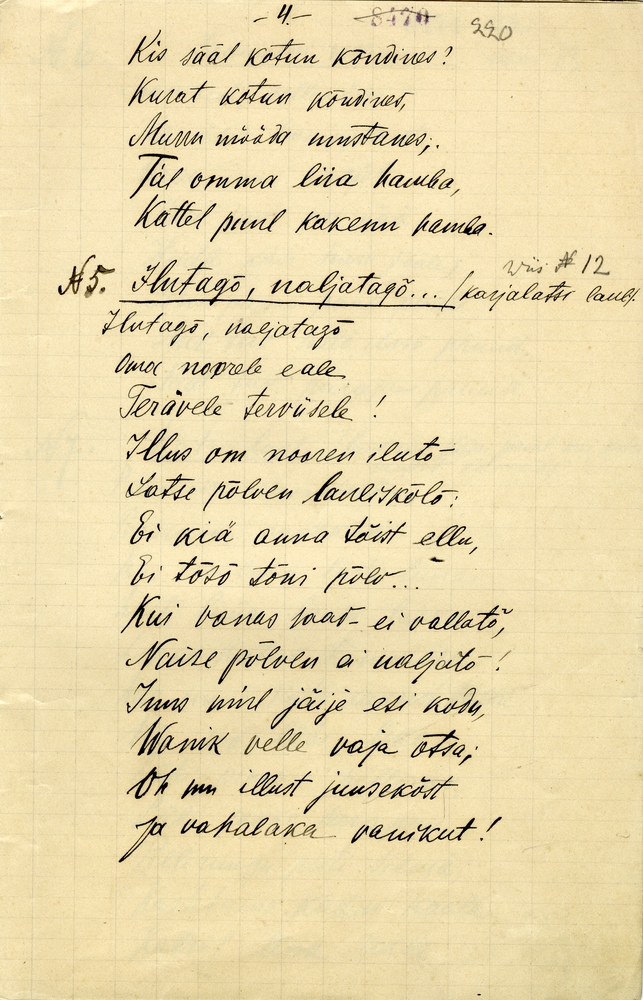 - 4. -
8470
220
Kis sääl kotun kõndines?
Kurat kotun kõndines,
Murru mõõda mustanes;.
Täl omma liia hamba,
Kattel puul kakenu hamba.
№ 5. Ilutagõ, naljatagõ... /karjalatse laul/.
Wiis № 12
Ilutagõ, naljatagõ
Oma noorele eale
Terävele terviisele!
Illus om nooren ilutõ
Latse põlven lauliskõlõ:
Ei kiä anna tõist ellu,
Ei tõsõ tõni põlv...
Kui vanas saad - ei vallatõ,
Naise põlven ei naljatõ!
Juus mul jäije esi kodu,
Wanik velle vaja otsa;
Oh mu illust juusekõst
ja vahalaka vanikut!